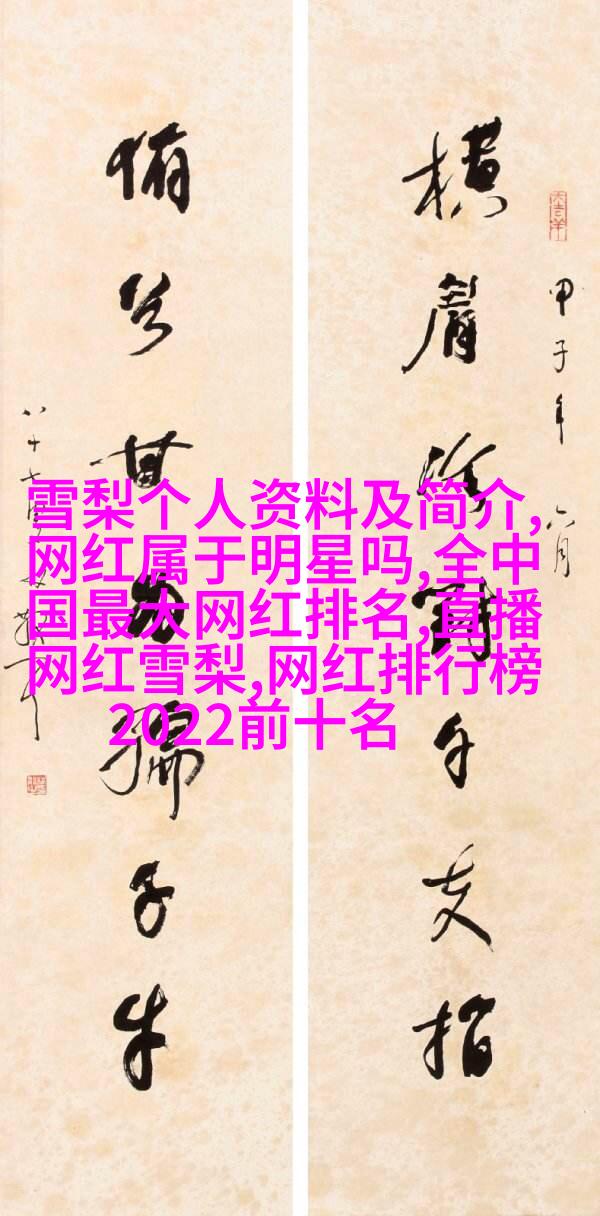 甲子年六月
橫眉冷對千夫指
俯首甘為孺子牛
八十七叟
雪梨个人资料及简介,
网红属于明星吗,全中
国最大网红排名,直播
网红雪梨,网红排行榜
2022前十名